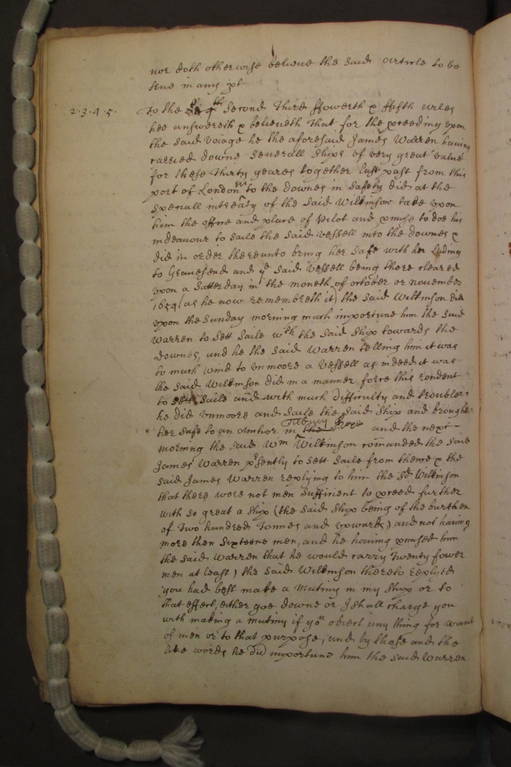 nor doth otherwise beleeve the said article to be
true in any pt
2.3.4.5. To the second third ffowerth & ffifth arles
hee answereth & beleeveth That for the proceeding upon
the said voiage he the aforesaid James Warren having
carried downe severall shipps of very great value
for these thirty yeares together last past from this
port of London to the downes in safety did at the
speciall intreaty of the said Wilkinson take upon
him the office and place of Pilot and promise to doe his
indeavour to saile the said vessell into the downes &
did in order thereunto bring her safe with her lading
to Gravesend and ye said vessell being there cleared
upon a Satterday in the moneth of october or november
1654 (as he now remembreth it) the said Wilkinson did
upon the Sunday morning much importune him the said
Warren to sett saile wth the said shipp towards the
downes, and he the said Warren telling him it was
to much wind to unmoore a vessell as indeed it was
the said Wilkinson did in a manner force this rendent
to saile and with much difficulty and trouble
he did unmoore and saile the said shipp and brought
her safe to an anchor in Tilbury Hope and the next
morning the said Wm Wilkinson comanded the said
James Warren psently to sett saile from thence & the
said James Warren replying to him the sd Wilkinson
that there were not men sufficient to proceed further
with so great a shipp (the said shipp being of the burthen
of Two hundred Tonnes and upwards) and not having
more then sixteene men, and he having promised him
the said Warren that he would carry Twenty fower
men at least) the said Wilkinson thereto replied
you had best make a mutiny in my shipp or to
that effect, either goe downe or I shall charge you
with making a mutiny if you obiect any thing for want
of men or to that purpose, and by those and the
like words he did importune him the said Warren